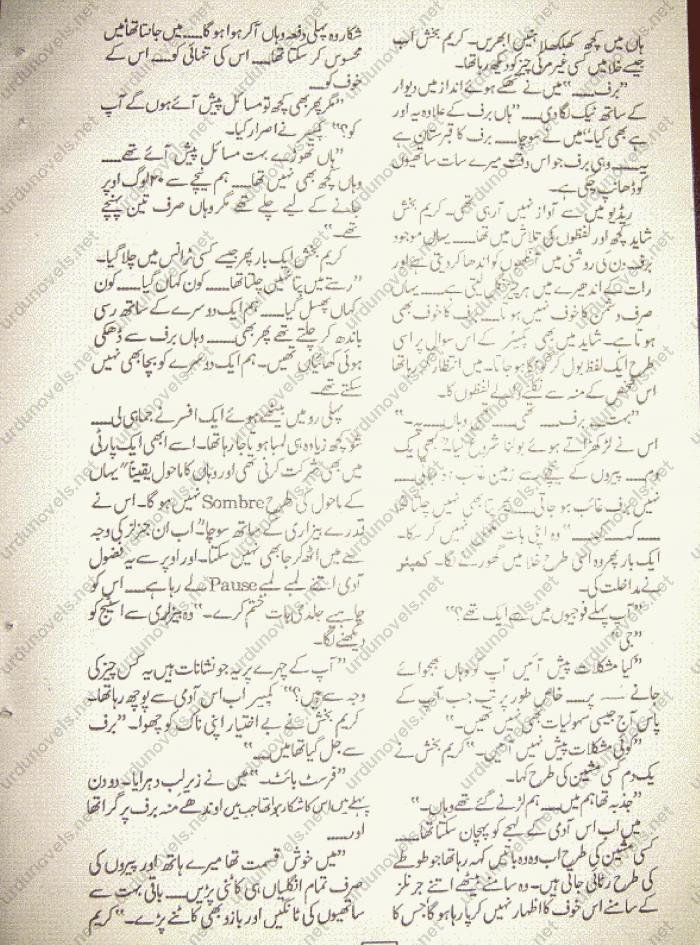 ہاں میں کچھ کھلکھلاہٹیں ابھریں۔ کریم بخش اب
جیسے خلا میں کسی غیر مرئی چیز کو دیکھ رہا تھا۔
"برف......" میں نے تھکے ہوئے انداز میں دیوار
کے ساتھ ٹیک لگا دی...... "ہاں برف کے علاوہ یہ اور
ہے بھی کیا۔" میں نے سوچا...... برف کا قبرستان ہے
یہ...... وہی برف جو اس وقت میرے سات ساتھیوں
کو ڈھانپ چکی ہے۔
ریڈیو میں سے آواز نہیں آ رہی تھی۔ کریم بخش
شاید کچھ اور لفظوں کی تلاش میں تھا...... یہاں موجود
برف دن کی روشنی میں آنکھوں کو اندھا کر دیتی ہے اور
رات کے اندھیرے میں ہر چیز نگل لیتی ہے...... یہاں
صرف دشمن کا خوف نہیں ہوتا...... برف کا خوف بھی
ہوتا ہے۔ شاید میں بھی کمپیئر کے اس سوال پر اسی
طرح ایک لفظ بول کر گونگا ہو جاتا۔ میں انتظار کر رہا تھا
اس شخص کے منہ سے نکلنے والے لفظوں کا۔
"بہت...... برف...... تھی...... تھی وہاں...... یہ۔"
اس نے لڑکھڑاتے ہوئے بولنا شروع کیا۔ "کبھی یک
دم...... پیروں کے نیچے سے زمین غائب ہو جاتی......
نہیں برف غائب ہو جاتی...... پتا بھی نہیں چلتا تھا
...... کہ......" وہ اپنی بات مکمل نہیں کر سکا۔
ایک بار پھر وہ اسی طرح خلا میں گھورنے لگا۔ کمپیئر
نے مداخلت کی۔
"آپ پہلے فوجیوں میں سے ایک تھے؟"
"جی"
"کیا مشکلات پیش آئیں آپ کو وہاں بھجوائے
جانے پر...... خاص طور پر تب جب آپ کے
پاس آج جیسی سہولیات بھی نہیں تھیں۔"
"کوئی مشکلات پیش نہیں آئیں۔" کریم بخش نے
یک دم کسی مشین کی طرح کہا۔
"جذبہ تھا ہم میں...... ہم لڑنے گئے تھے وہاں۔"
میں اب اس آدمی کے لہجے کو پہچان سکتا تھا......
کسی مشین کی طرح اب وہ وہ باتیں کہہ رہا تھا جو طوطے
کی طرح رٹائی جاتی ہیں۔ وہ سامنے بیٹھے اتنے جرنلز
کے سامنے اس خوف کا اظہار نہیں کر پا رہا ہو گا جس کا
شکار وہ پہلی دفعہ وہاں آ کر ہوا ہو گا...... میں جانتا تھا میں
محسوس کر سکتا تھا...... اس کی تنہائی کو...... اس کے
خوف کو......
"مگر پھر بھی کچھ تو مسائل پیش آئے ہوں گے آپ
کو؟" کمپیئر نے اصرار کیا۔
"ہاں تھوڑے بہت مسائل پیش آئے تھے......
وہاں کچھ بھی نہیں تھا...... ہم نیچے سے ۲۰ لوگ اوپر
جانے کے لیے چلے تھے مگر وہاں صرف تین پہنچے
تھے۔"
کریم بخش ایک بار پھر جیسے کسی ٹرانس میں چلا گیا۔
"رستے میں پتا نہیں چلتا تھا...... کون کہاں گیا...... کون
کہاں پھسل گیا...... ہم ایک دوسرے کے ساتھ رسی
باندھ کر چلتے تھے پھر بھی...... وہاں برف سے ڈھکی
ہوئی کھائیاں تھیں۔ ہم ایک دوسرے کو بچا بھی نہیں
سکتے تھے۔
پہلی رو میں بیٹھے ہوئے ایک افسر نے جماہی لی......
شو کچھ زیادہ ہی لمبا ہوتا جا رہا تھا۔ اسے ابھی ایک پارٹی
میں بھی شرکت کرنی تھی اور وہاں کا ماحول یقیناً "یہاں
کے ماحول کی طرح Sombre نہیں ہو گا۔ اس نے
قدرے بیزاری کے ساتھ سوچا۔ "اب ان جنرلز کی وجہ
سے میں اٹھ کر جا بھی نہیں سکتا۔ اور اوپر سے یہ فضول
آدمی اتنے لمبے لمبے Pause لے رہا ہے...... اس کو
چاہیے جلدی بات ختم کرے۔" وہ بیزاری سے اسٹیج کو
دیکھنے لگا۔
"آپ کے چہرے پر یہ جو نشانات ہیں یہ کس چیز کی
وجہ سے ہیں؟" کمپیئر اب اس آدمی سے پوچھ رہا تھا۔
کریم بخش نے بے اختیار اپنی ناک کو چھوا۔ "برف
سے جل گیا تھا میں......"
"فرسٹ بائٹ۔" میں نے زیر لب دہرایا۔ دو دن
پہلے میں اس کا شکار ہوا تھا جب میں اوندھے منہ برف پر گرا تھا
اور......
"میں خوش قسمت تھا میرے ہاتھ اور پیروں کی
صرف تمام انگلیاں ہی کاٹنی پڑیں...... باقی بہت سے
ساتھیوں کی ٹانگیں اور بازو بھی کاٹنے پڑے۔" کریم